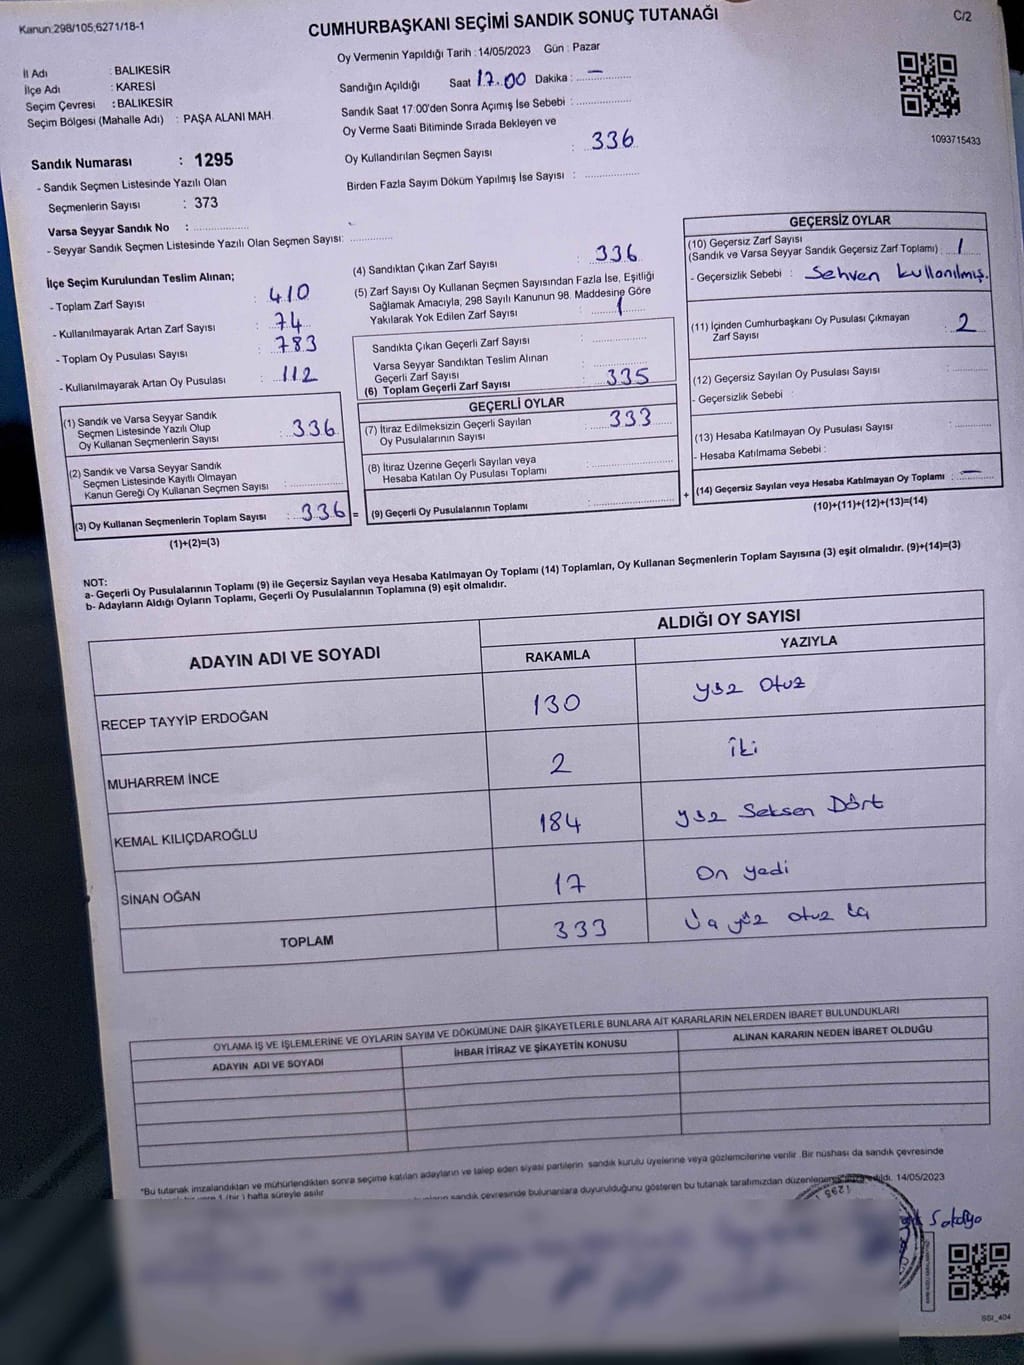 Kanun:298/105;6271/18-1
CUMHURBAŞKANI SEÇİMİ SANDIK SONUÇ TUTANAĞI
C/2
İl Adı : BALIKESİR
İlçe Adı : KARESİ
Seçim Çevresi : BALIKESİR
Seçim Bölgesi (Mahalle Adı) : PAŞA ALANI MAH.
Sandık Numarası : 1295
- Sandık Seçmen Listesinde Yazılı Olan
Seçmenlerin Sayısı : 373
Varsa Seyyar Sandık No : ..................
- Seyyar Sandık Seçmen Listesinde Yazılı Olan Seçmen Sayısı: ............
Oy Vermenin Yapıldığı Tarih : 14/05/2023 Gün : Pazar
Sandığın Açıldığı Saat 17.00 Dakika : —
Sandık Saat 17:00'den Sonra Açımış İse Sebebi : ...............
Oy Verme Saati Bitiminde Sırada Bekleyen ve
Oy Kullandırılan Seçmen Sayısı : 336
Birden Fazla Sayım Döküm Yapılmış İse Sayısı : ...............
1093715433
İlçe Seçim Kurulundan Teslim Alınan;
- Toplam Zarf Sayısı : 410
- Kullanılmayarak Artan Zarf Sayısı : 74
- Toplam Oy Pusulası Sayısı : 783
- Kullanılmayarak Artan Oy Pusulası : 112
(1) Sandık ve Varsa Seyyar Sandık
Seçmen Listesinde Yazılı Olup
Oy Kullanan Seçmenlerin Sayısı : 336
(2) Sandık ve Varsa Seyyar Sandık
Seçmen Listesinde Kayıtlı Olmayan
Kanun Gereği Oy Kullanan Seçmen Sayısı : ...............
(3) Oy Kullanan Seçmenlerin Toplam Sayısı : 336 =
(1)+(2)=(3)
(4) Sandıktan Çıkan Zarf Sayısı : 336
(5) Zarf Sayısı Oy Kullanan Seçmen Sayısından Fazla İse, Eşitliği
Sağlamak Amacıyla, 298 Sayılı Kanunun 98. Maddesine Göre
Yakılarak Yok Edilen Zarf Sayısı : 1
Sandıkta Çıkan Geçerli Zarf Sayısı : ...............
Varsa Seyyar Sandıktan Teslim Alınan
Geçerli Zarf Sayısı : ...............
(6) Toplam Geçerli Zarf Sayısı : 335
GEÇERLİ OYLAR
(7) İtiraz Edilmeksizin Geçerli Sayılan
Oy Pusulalarının Sayısı : 333
(8) İtiraz Üzerine Geçerli Sayılan veya
Hesaba Katılan Oy Pusulası Toplamı : ...............
(9) Geçerli Oy Pusulalarının Toplamı : ............... +
GEÇERSİZ OYLAR
(10) Geçersiz Zarf Sayısı
(Sandık ve Varsa Seyyar Sandık Geçersiz Zarf Toplamı) : 1
- Geçersizlik Sebebi : Sehven kullanılmış.
(11) İçinden Cumhurbaşkanı Oy Pusulası Çıkmayan
Zarf Sayısı : 2
(12) Geçersiz Sayılan Oy Pusulası Sayısı : ............
- Geçersizlik Sebebi :
(13) Hesaba Katılmayan Oy Pusulası Sayısı : ............
- Hesaba Katılmama Sebebi :
(14) Geçersiz Sayılan veya Hesaba Katılmayan Oy Toplamı : —
(10)+(11)+(12)+(13)=(14)
NOT:
a- Geçerli Oy Pusulalarının Toplamı (9) ile Geçersiz Sayılan veya Hesaba Katılmayan Oy Toplamı (14) Toplamları, Oy Kullanan Seçmenlerin Toplam Sayısına (3) eşit olmalıdır. (9)+(14)=(3)
b- Adayların Aldığı Oyların Toplamı, Geçerli Oy Pusulalarının Toplamına (9) eşit olmalıdır.
ADAYIN ADI VE SOYADI
ALDIĞI OY SAYISI
RAKAMLA
YAZIYLA
RECEP TAYYİP ERDOĞAN 130 yüz Otuz
MUHARREM İNCE 2 İki
KEMAL KILIÇDAROĞLU 184 yüz Seksen Dört
SİNAN OĞAN 17 On yedi
TOPLAM 333 Üç yüz otuz üç
OYLAMA İŞ VE İŞLEMLERİNE VE OYLARIN SAYIM VE DÖKÜMÜNE DAİR ŞİKAYETLERLE BUNLARA AİT KARARLARIN NELERDEN İBARET BULUNDUKLARI
ADAYIN ADI VE SOYADI
İHBAR İTİRAZ VE ŞİKAYETİN KONUSU
ALINAN KARARIN NEDEN İBARET OLDUĞU
"Bu tutanak imzalandıktan ve mühürlendikten sonra seçime katılan adayların ve talep eden siyasi partilerin sandık kurulu üyelerine veya gözlemcilerine verilir .Bir nüshası da sandık çevresinde
1 (bir ) hafta süreyle asılır sandık çevresinde bulunanlara duyurulduğunu gösteren bu tutanak tarafımızdan 14/05/2023
1295
SSI_404